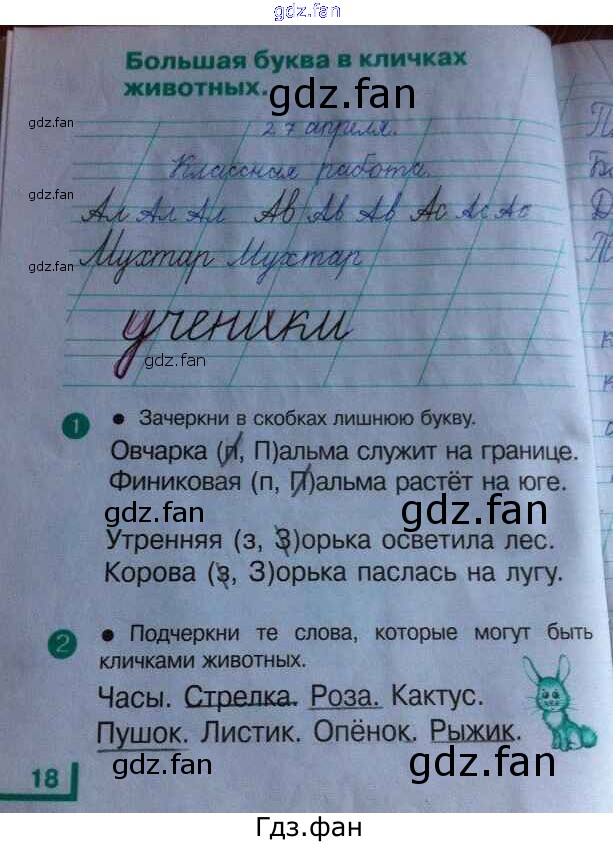 gdz.fan
Большая буква в кличках
животных.
gdz.fan
gdz.fan
27 апреля.
Классная работа.
gdz.fan
Ал Ал Ал Ав Ав Ав Ас Ас Ас
Мухтар Мухтар
gdz.fan
ученики
gdz.fan
1 • Зачеркни в скобках лишнюю букву.
Овчарка (п, П)альма служит на границе.
Финиковая (п, П)альма растёт на юге.
gdz.fan
gdz.fan
Утренняя (з, З)орька осветила лес.
Корова (з, З)орька паслась на лугу.
2 • Подчеркни те слова, которые могут быть
кличками животных.
Часы. Стрелка. Роза. Кактус.
Пушок. Листик. Опёнок. Рыжик.
18
gdz.fan
gdz.fan
Гдз.фан